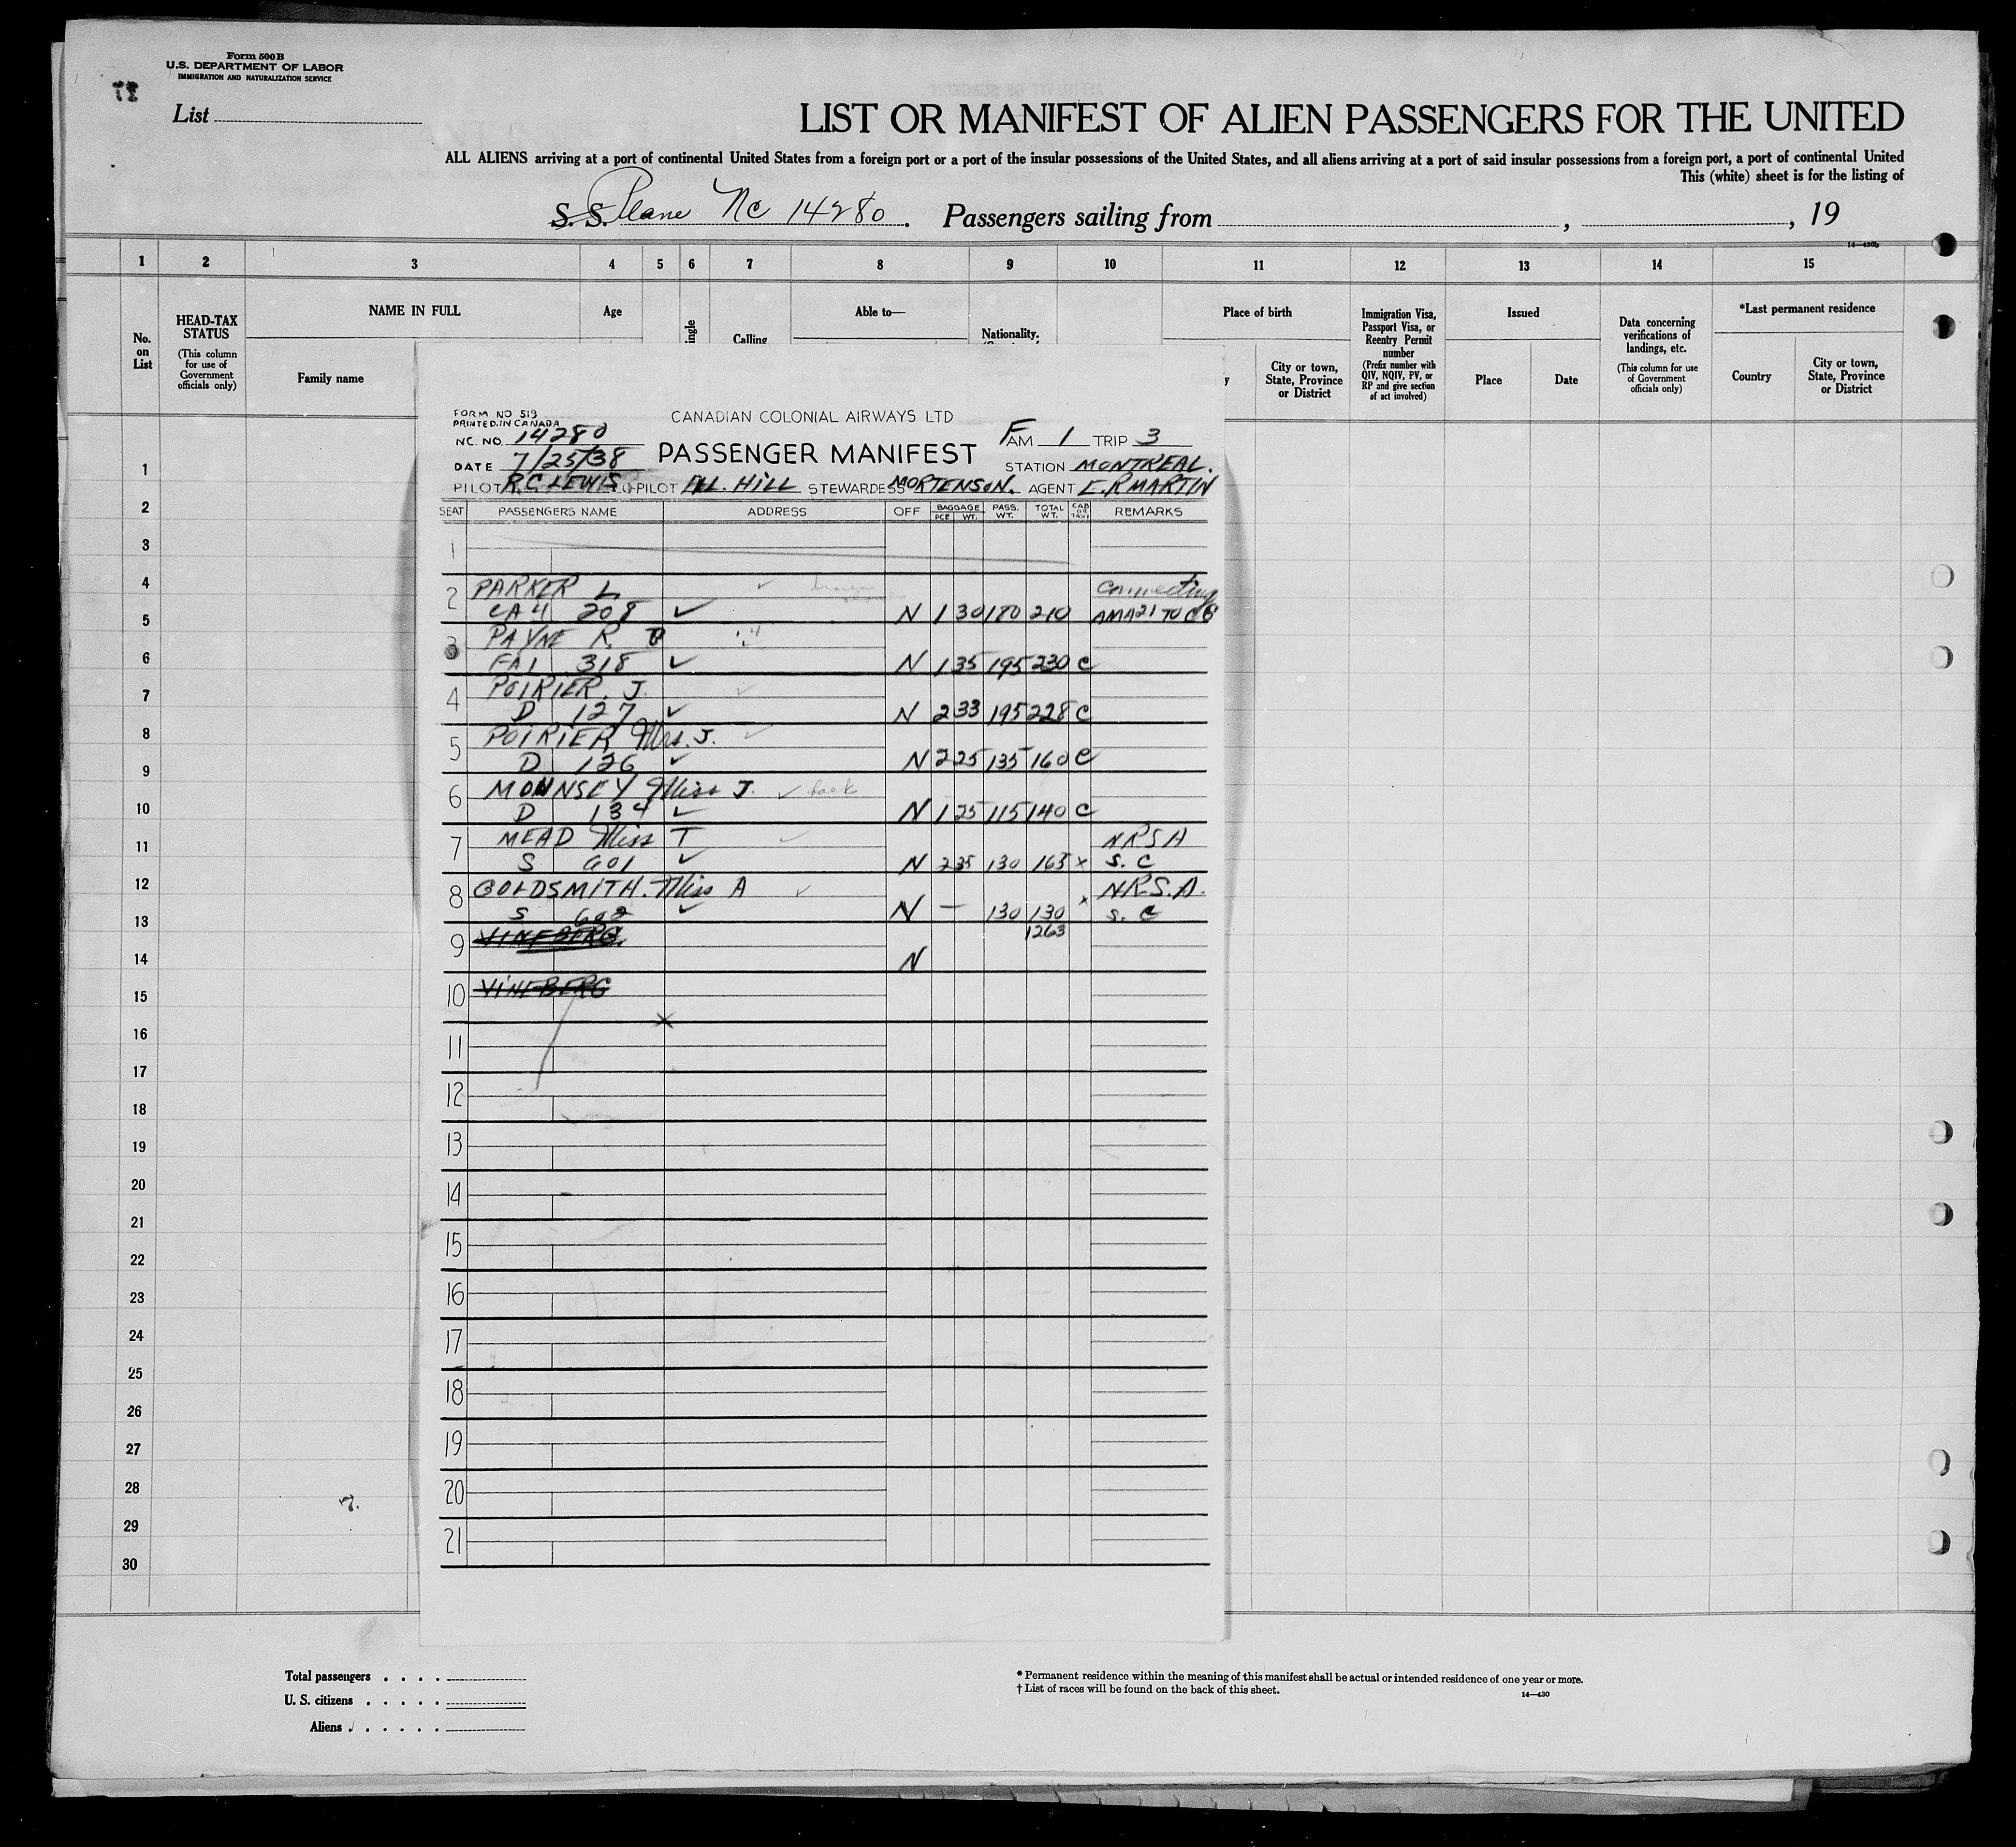 Form 500B
U.S. DEPARTMENT OF LABOR
IMMIGRATION AND NATURALIZATION SERVICE
27
List
LIST OR MANIFEST OF ALIEN PASSENGERS FOR THE UNITED
ALL ALIENS arriving at a port of continental United States from a foreign port or a port of the insular possessions of the United States, and all aliens arriving at a port of said insular possessions from a foreign port, a port of continental United
This (white) sheet is for the listing of
S. S. Plane Nc 14280. Passengers sailing from , , 19
14—430b
1 2 3 4 5 6 7 8 9 10 11 12 13 14 15
No. on List
HEAD-TAX STATUS
(This column for use of Government officials only)
NAME IN FULL
Family name
Age
Calling
Able to—
Nationality.
Place of birth
City or town, State, Province or District
Immigration Visa, Passport Visa, or Reentry Permit number
(Prefix number with QIV, NQIV, PV, or RP and give section of act involved)
Issued
Place
Date
Data concerning verifications of landings, etc.
(This column for use of Government officials only)
*Last permanent residence
Country
City or town, State, Province or District
FORM NO 519
PRINTED IN CANADA
CANADIAN COLONIAL AIRWAYS LTD
NC. NO. 14280
PASSENGER MANIFEST
FAM 1 TRIP 3
DATE 7/25/38
STATION MONTREAL.
PILOT R.C. LEWIS CO PILOT HILL STEWARDESS MORTENSON. AGENT E.R MARTIN
SEAT PASSENGERS NAME ADDRESS OFF BAGGAGE PCE WT. PASS. WT. TOTAL WT. CAB OR TAXI REMARKS
1
2 PARKER L. Connecting
CA 4 208 ✓ N 1 30 180 210 AMA 21 TO CG
3 PAYNE R.
FA1 318 ✓ N 1 35 195 230 C
4 POIRIER. J.
D 127 ✓ N 2 33 195 228 C
5 POIRIER Mrs. J.
D 126 ✓ N 2 25 135 160 C
6 MONNSEY Miss J. ✓ back
D 134 ✓ N 1 25 115 140 C
7 MEAD Miss T NRSA
S 601 ✓ N 2 35 130 165 x S. C
8 GOLDSMITH. Miss A N.R.S.A.
S 602 ✓ N — 130 130 x S. C
9 VINEBERG. 1263
N
10 VINEBERG
11
12
13
14
15
16
17
18
19
20
21
1
2
3
4
5
6
7
8
9
10
11
12
13
14
15
16
17
18
19
20
21
22
23
24
25
26
27
28
29
30
Total passengers
U. S. citizens
Aliens
* Permanent residence within the meaning of this manifest shall be actual or intended residence of one year or more.
† List of races will be found on the back of this sheet.
14—430